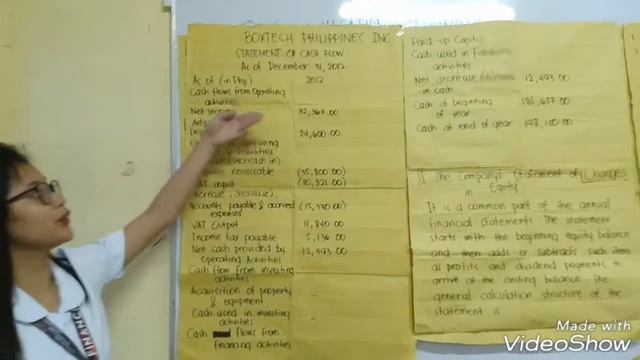 BOXTECH PHILIPPINES INC
STATEMENT OF CASH FLOW
As of December 31, 2012
As of (in Php) 2012
Cash flows from Operating
activities
Net 32,367.00
24,600.00
increase in)
receivable (35,800.00)
input (10,321.00)
Accounts payable & accrued (15,370.00)
expenses
VAT Output 11,840.00
Income tax payable 5,136.00
Net cash provided by 12,493.00
Operating Activities
Cash flow from investing
activities
Acquisition of property
& equipment
Cash used in investing
activities
Cash flows from
financing activities
Paid-up Capital
Cash used in financing
activities
Net decrease 12,493.00
in cash
Cash at beginning 185,657.00
of year
Cash at end of year 198,100.00
II. The Company's Statement of Changes
in Equity
It is a common part of the annual
financial statements. The statement
starts with the beginning equity balance
and then adds or subtracts such item
as profits and dividend payments to
arrive at the ending balance. The
general calculation structure of the
statement is
Made with
VideoShow